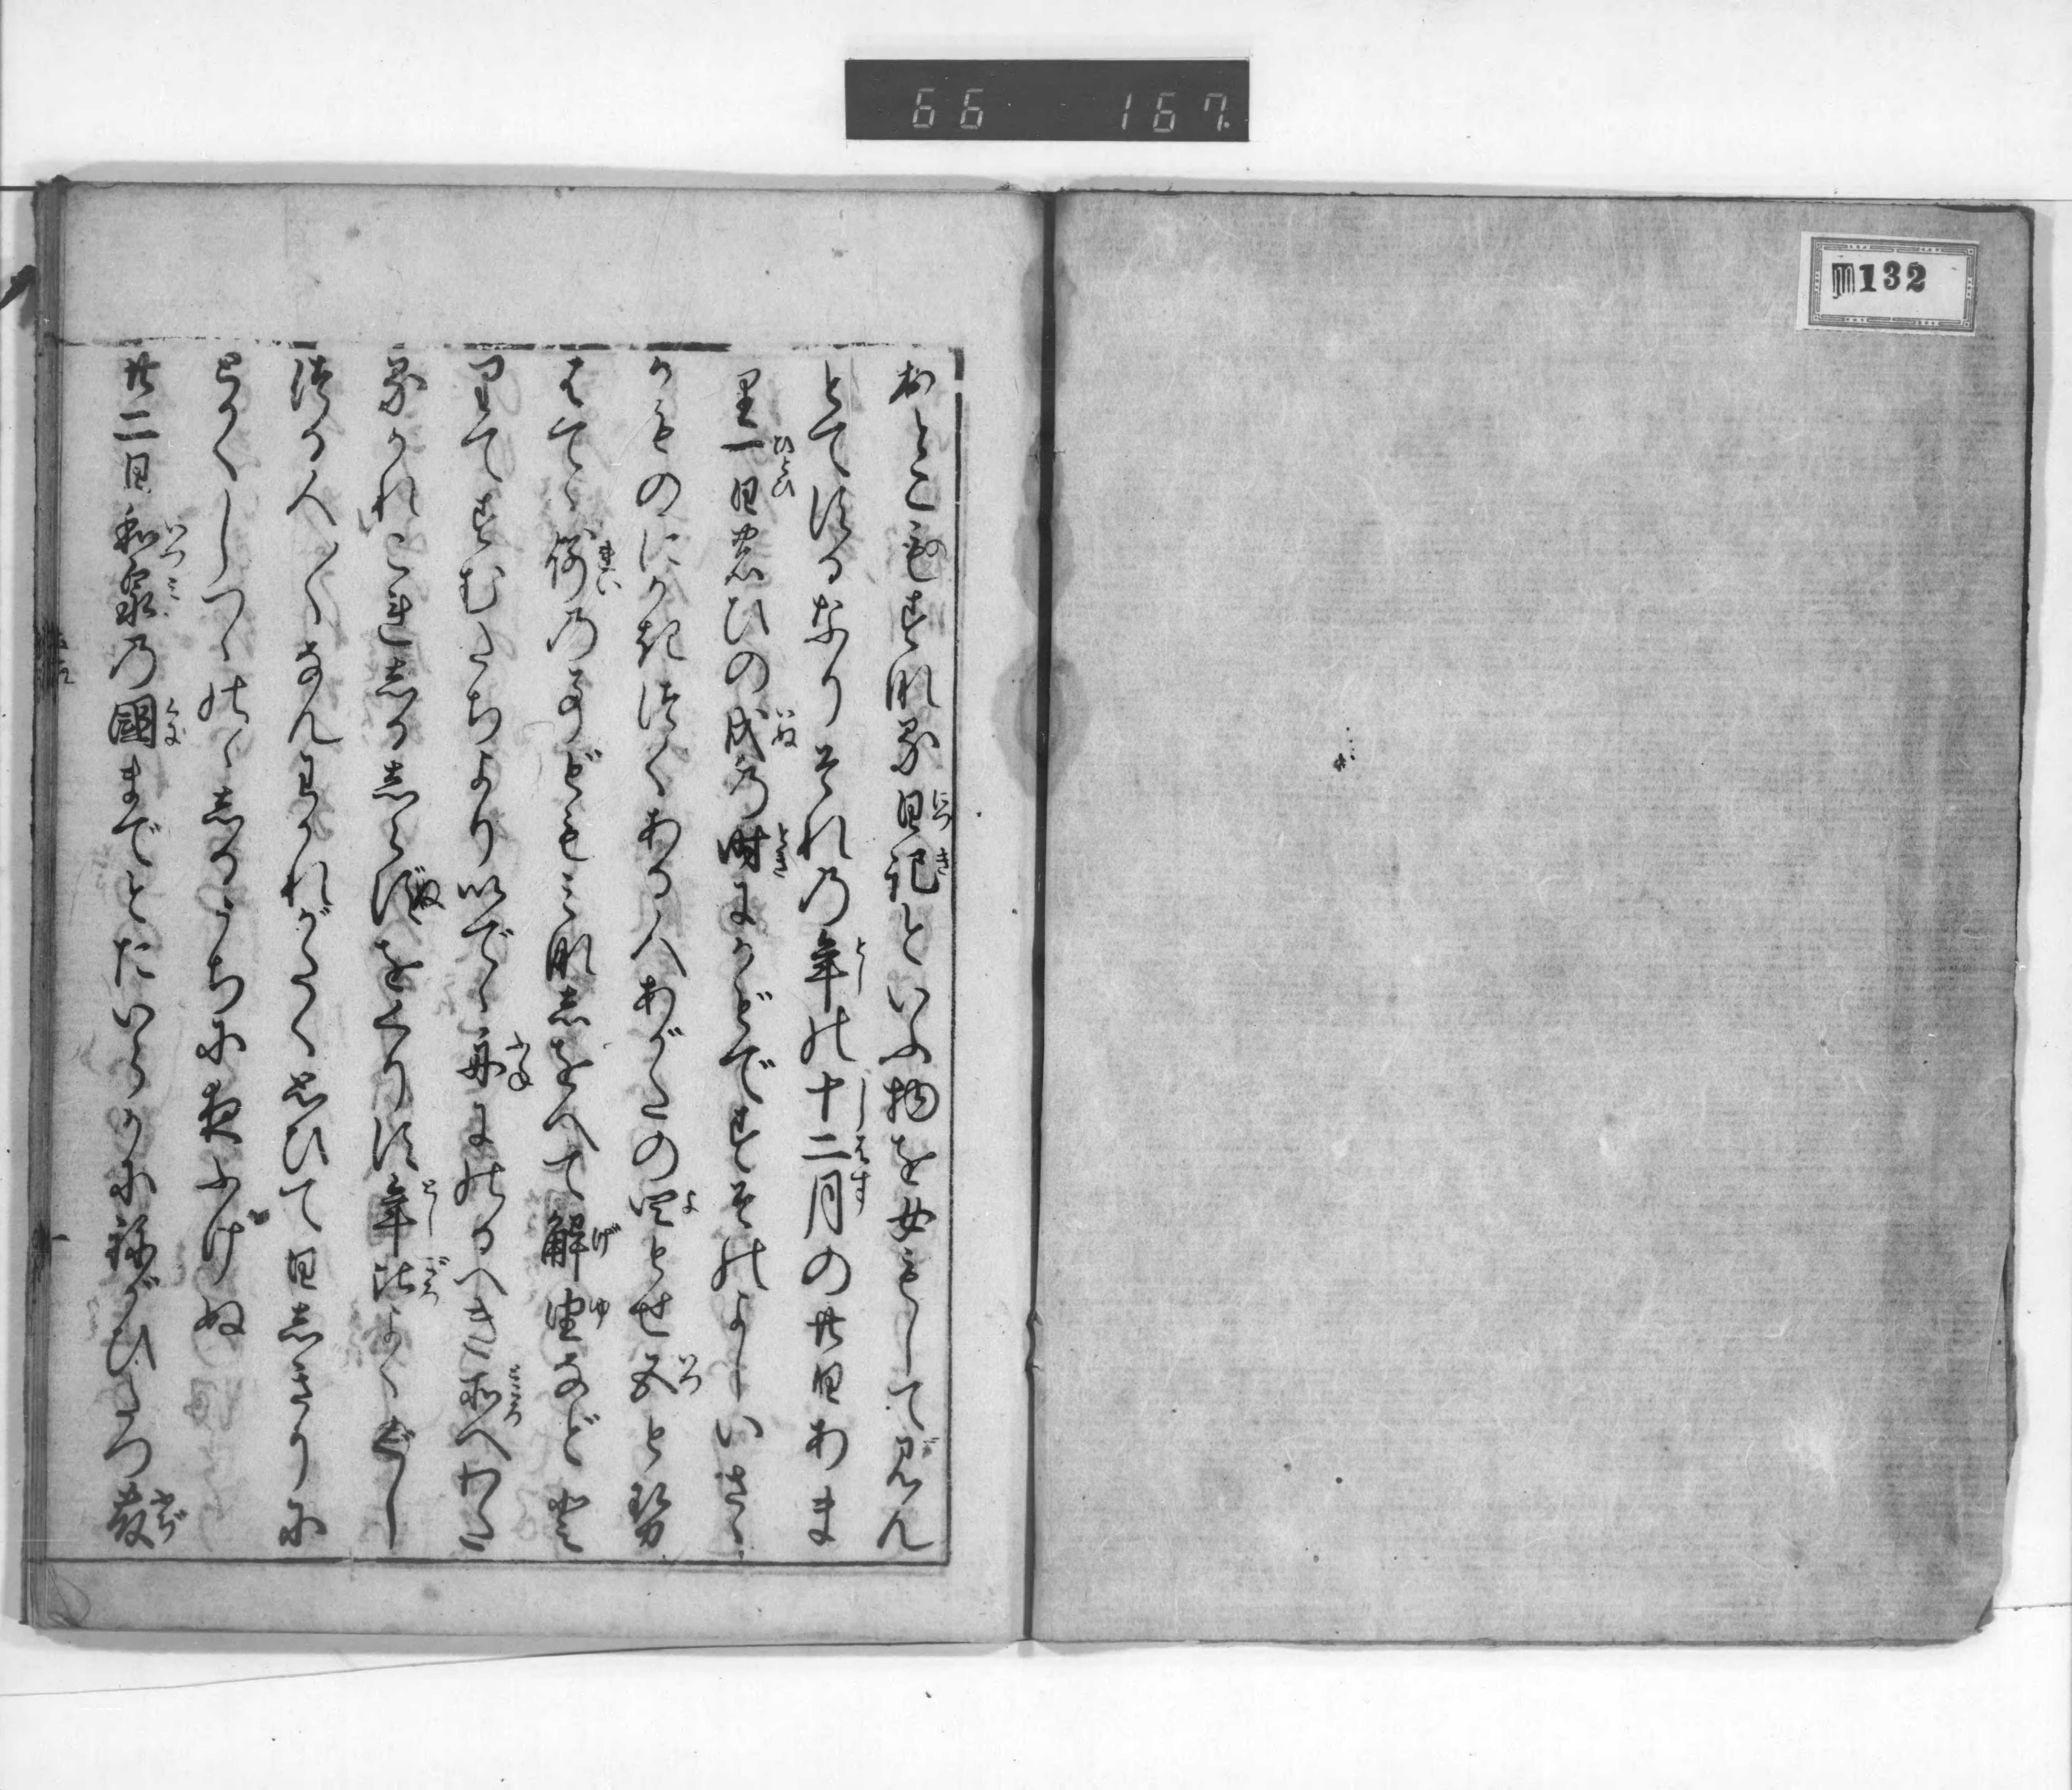 66 167
132
おとこもすなる日記といふ物を女もして見ん
とてするなりそれの年の十二月の廿日あま
り一日のひの戌の時にかどですそのよしいさゝ
かものにかきつくある人あがたの四とせ五とせ
はてゝ例のことどもみなしをへて解由などと
りてすむたちよりいでゝ舟にのるへき所へわた
るかれこれしるしらずをくりす年比よくぐし
つる人〳〵なんわかれがたく思ひて日しきりに
とかくしつゝのゝしるうちに夜ふけぬ
廿二日和泉の國までとたいらかにねがひたつ藤